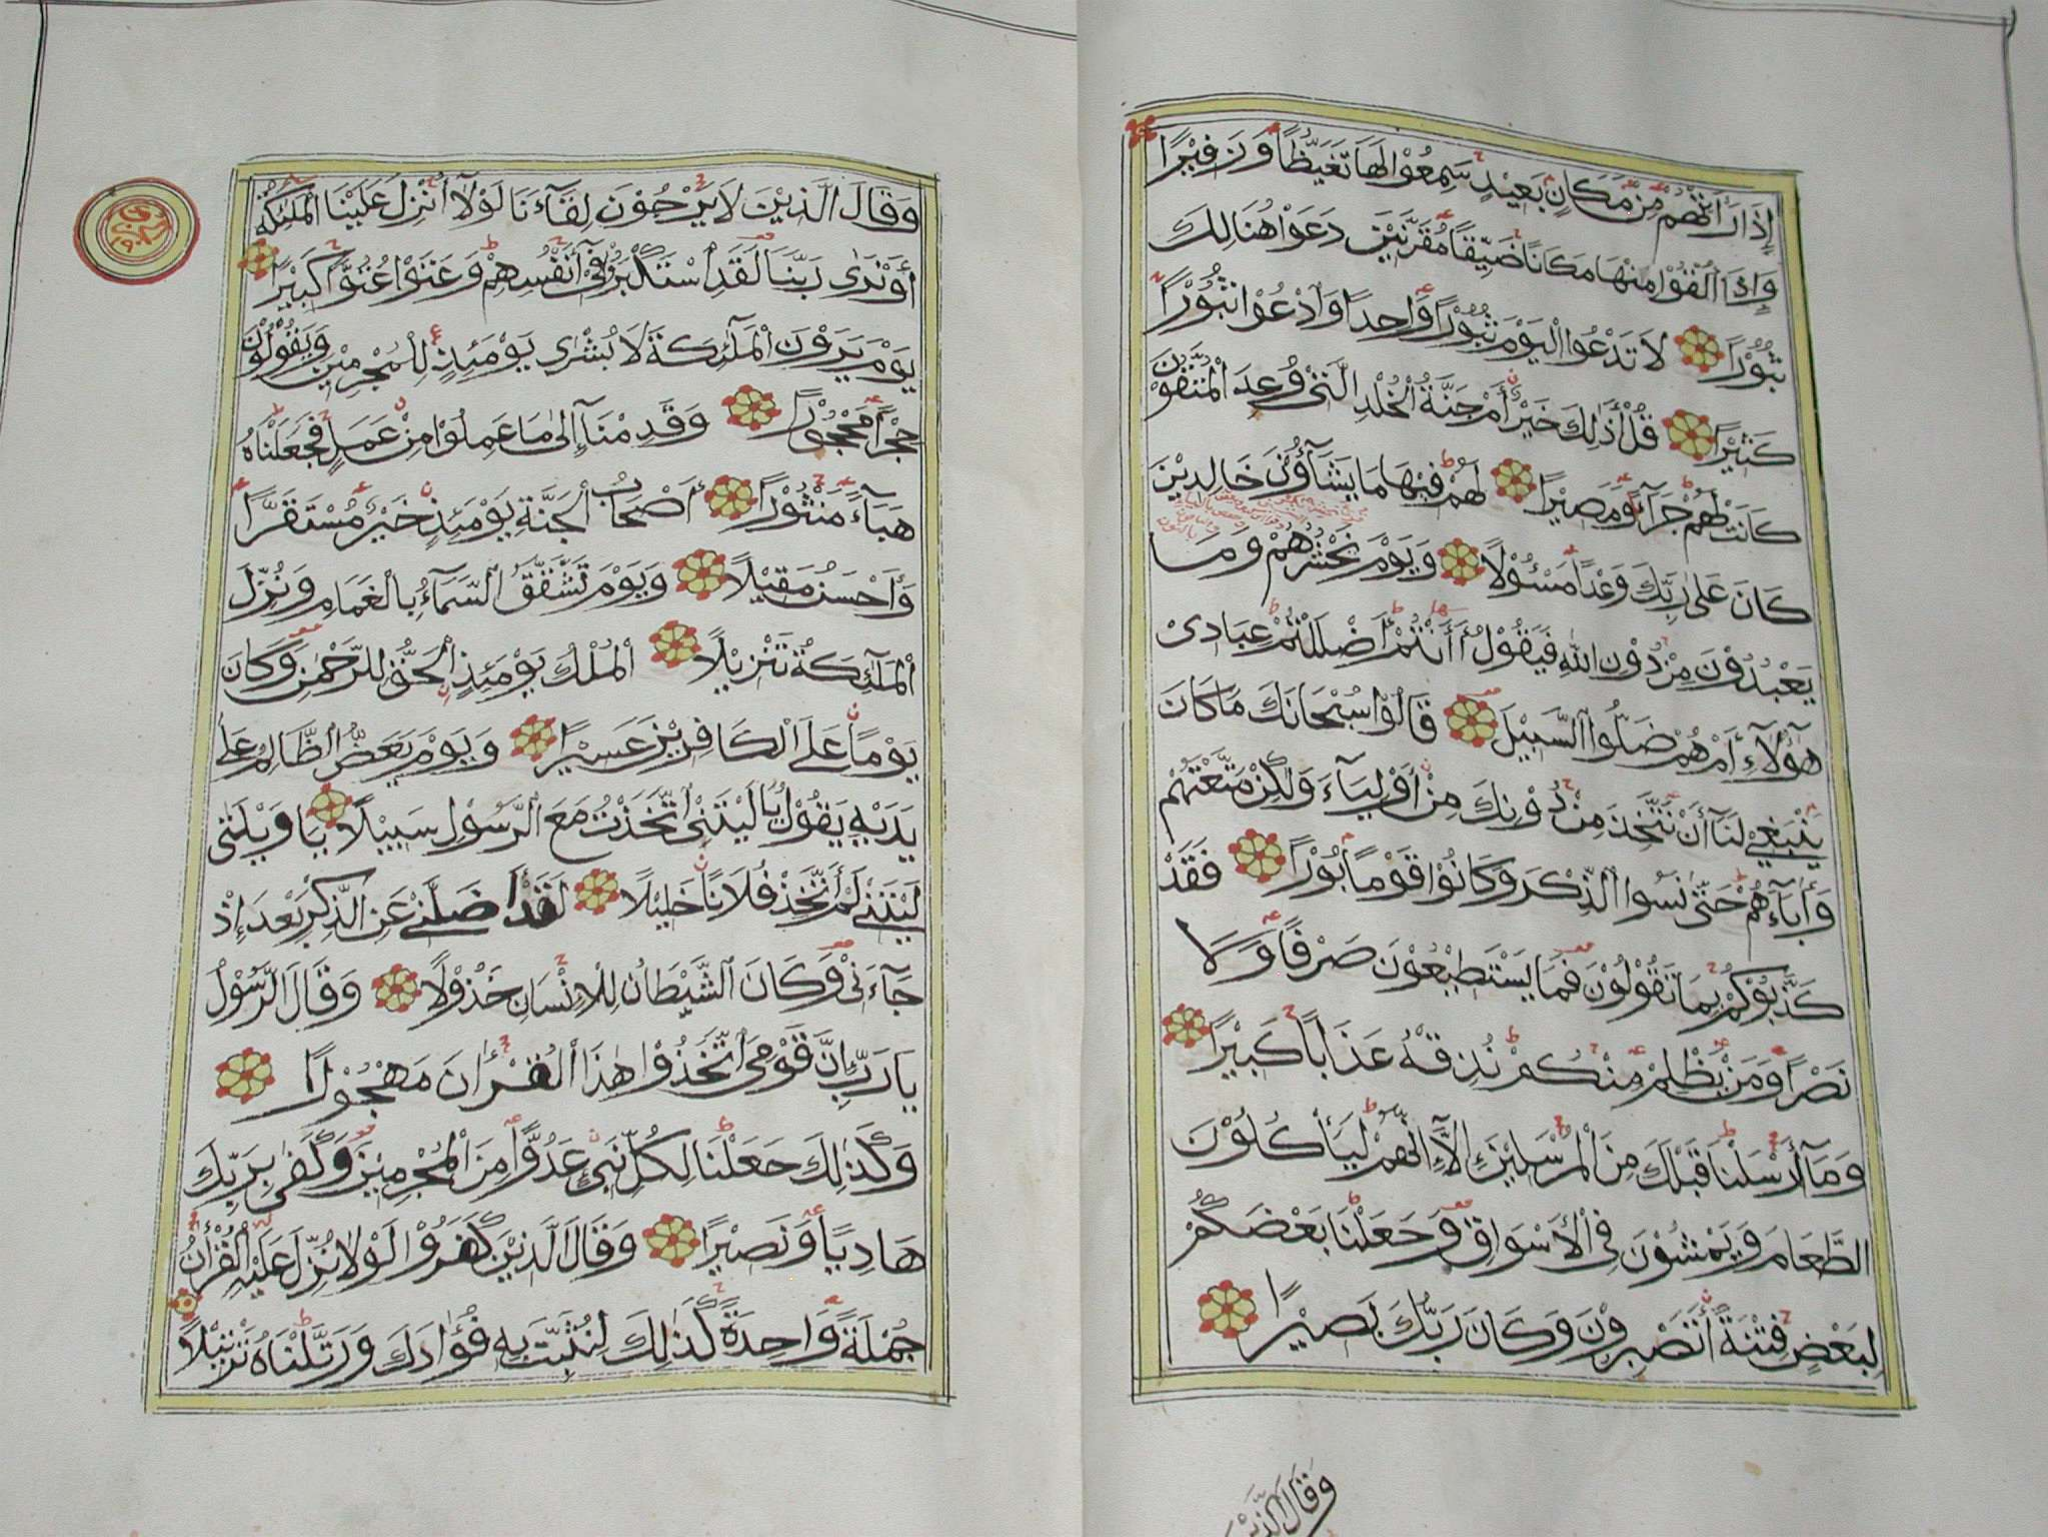 إِذَا رَأَتْهُمْ مِنْ مَكَانٍ بَعِيْدٍ سَمِعُوْا لَهَا تَغَيُّظًا وَزَفِيْرًا
وَإِذَا أُلْقُوْا مِنْهَا مَكَانًا ضَيِّقًا مُقَرَّنِيْنَ دَعَوْا هُنَالِكَ
ثُبُوْرًا لَا تَدْعُوا الْيَوْمَ ثُبُوْرًا وَاحِدًا وَادْعُوْا ثُبُوْرًا
كَثِيْرًا قُلْ أَذَٰلِكَ خَيْرٌ أَمْ جَنَّةُ الْخُلْدِ الَّتِيْ وُعِدَ الْمُتَّقُوْنَ
كَانَتْ لَهُمْ جَزَآءً وَمَصِيْرًا لَهُمْ فِيْهَا مَا يَشَآؤُنَ خَالِدِيْنَ
كَانَ عَلَىٰ رَبِّكَ وَعْدًا مَسْؤُلًا وَيَوْمَ نَحْشُرُهُمْ وَمَا
يَعْبُدُوْنَ مِنْ دُوْنِ اللهِ فَيَقُوْلُ أَأَنْتُمْ أَضْلَلْتُمْ عِبَادِيْ
هَٰؤُلَآءِ أَمْ هُمْ ضَلُّوا السَّبِيْلَ قَالُوْا سُبْحَانَكَ مَا كَانَ
يَنْبَغِيْ لَنَآ أَنْ نَتَّخِذَ مِنْ دُوْنِكَ مِنْ أَوْلِيَآءَ وَلَٰكِنْ مَتَّعْتَهُمْ
وَأٰبَآءَهُمْ حَتَّىٰ نَسُوا الذِّكْرَ وَكَانُوْا قَوْمًا بُوْرًا فَقَدْ
كَذَّبُوْكُمْ بِمَا تَقُوْلُوْنَ فَمَا يَسْتَطِيْعُوْنَ صَرْفًا وَلَا
نَصْرًا وَمَنْ يَظْلِمْ مِنْكُمْ نُذِقْهُ عَذَابًا كَبِيْرًا
وَمَآ أَرْسَلْنَا قَبْلَكَ مِنَ الْمُرْسَلِيْنَ إِلَّآ إِنَّهُمْ لَيَأْكُلُوْنَ
الطَّعَامَ وَيَمْشُوْنَ فِي الْأَسْوَاقِ وَجَعَلْنَا بَعْضَكُمْ
لِبَعْضٍ فِتْنَةً أَتَصْبِرُوْنَ وَكَانَ رَبُّكَ بَصِيْرًا
وَقَالَ الَّذِيْنَ
وَقَالَ الَّذِيْنَ لَا يَرْجُوْنَ لِقَآءَنَا لَوْلَا أُنْزِلَ عَلَيْنَا الْمَلَٰٓئِكَةُ
أَوْ نَرَىٰ رَبَّنَا لَقَدِ اسْتَكْبَرُوْا فِيْ أَنْفُسِهِمْ وَعَتَوْا عُتُوًّا كَبِيْرًا
يَوْمَ يَرَوْنَ الْمَلَٰٓئِكَةَ لَا بُشْرَىٰ يَوْمَئِذٍ لِلْمُجْرِمِيْنَ وَيَقُوْلُوْنَ
حِجْرًا مَحْجُوْرًا وَقَدِمْنَآ إِلَىٰ مَا عَمِلُوْا مِنْ عَمَلٍ فَجَعَلْنَاهُ
هَبَآءً مَنْثُوْرًا أَصْحَابُ الْجَنَّةِ يَوْمَئِذٍ خَيْرٌ مُسْتَقَرًّا
وَأَحْسَنُ مَقِيْلًا وَيَوْمَ تَشَّقَّقُ السَّمَآءُ بِالْغَمَامِ وَنُزِّلَ
الْمَلَٰٓئِكَةُ تَنْزِيْلًا الْمُلْكُ يَوْمَئِذٍ الْحَقُّ لِلرَّحْمٰنِ وَكَانَ
يَوْمًا عَلَى الْكَافِرِيْنَ عَسِيْرًا وَيَوْمَ يَعَضُّ الظَّالِمُ عَلَىٰ
يَدَيْهِ يَقُوْلُ يَا لَيْتَنِي اتَّخَذْتُ مَعَ الرَّسُوْلِ سَبِيْلًا يَا وَيْلَتَىٰ
لَيْتَنِيْ لَمْ أَتَّخِذْ فُلَانًا خَلِيْلًا لَقَدْ أَضَلَّنِيْ عَنِ الذِّكْرِ بَعْدَ إِذْ
جَآءَنِيْ وَكَانَ الشَّيْطَانُ لِلْإِنْسَانِ خَذُوْلًا وَقَالَ الرَّسُوْلُ
يَا رَبِّ إِنَّ قَوْمِي اتَّخَذُوْا هٰذَا الْقُرْأٰنَ مَهْجُوْرًا
وَكَذَٰلِكَ جَعَلْنَا لِكُلِّ نَبِيٍّ عَدُوًّا مِنَ الْمُجْرِمِيْنَ وَكَفَىٰ بِرَبِّكَ
هَادِيًا وَنَصِيْرًا وَقَالَ الَّذِيْنَ كَفَرُوْا لَوْلَا نُزِّلَ عَلَيْهِ الْقُرْأٰنُ
جُمْلَةً وَاحِدَةً كَذَٰلِكَ لِنُثَبِّتَ بِهِ فُؤَادَكَ وَرَتَّلْنَاهُ تَرْتِيْلًا